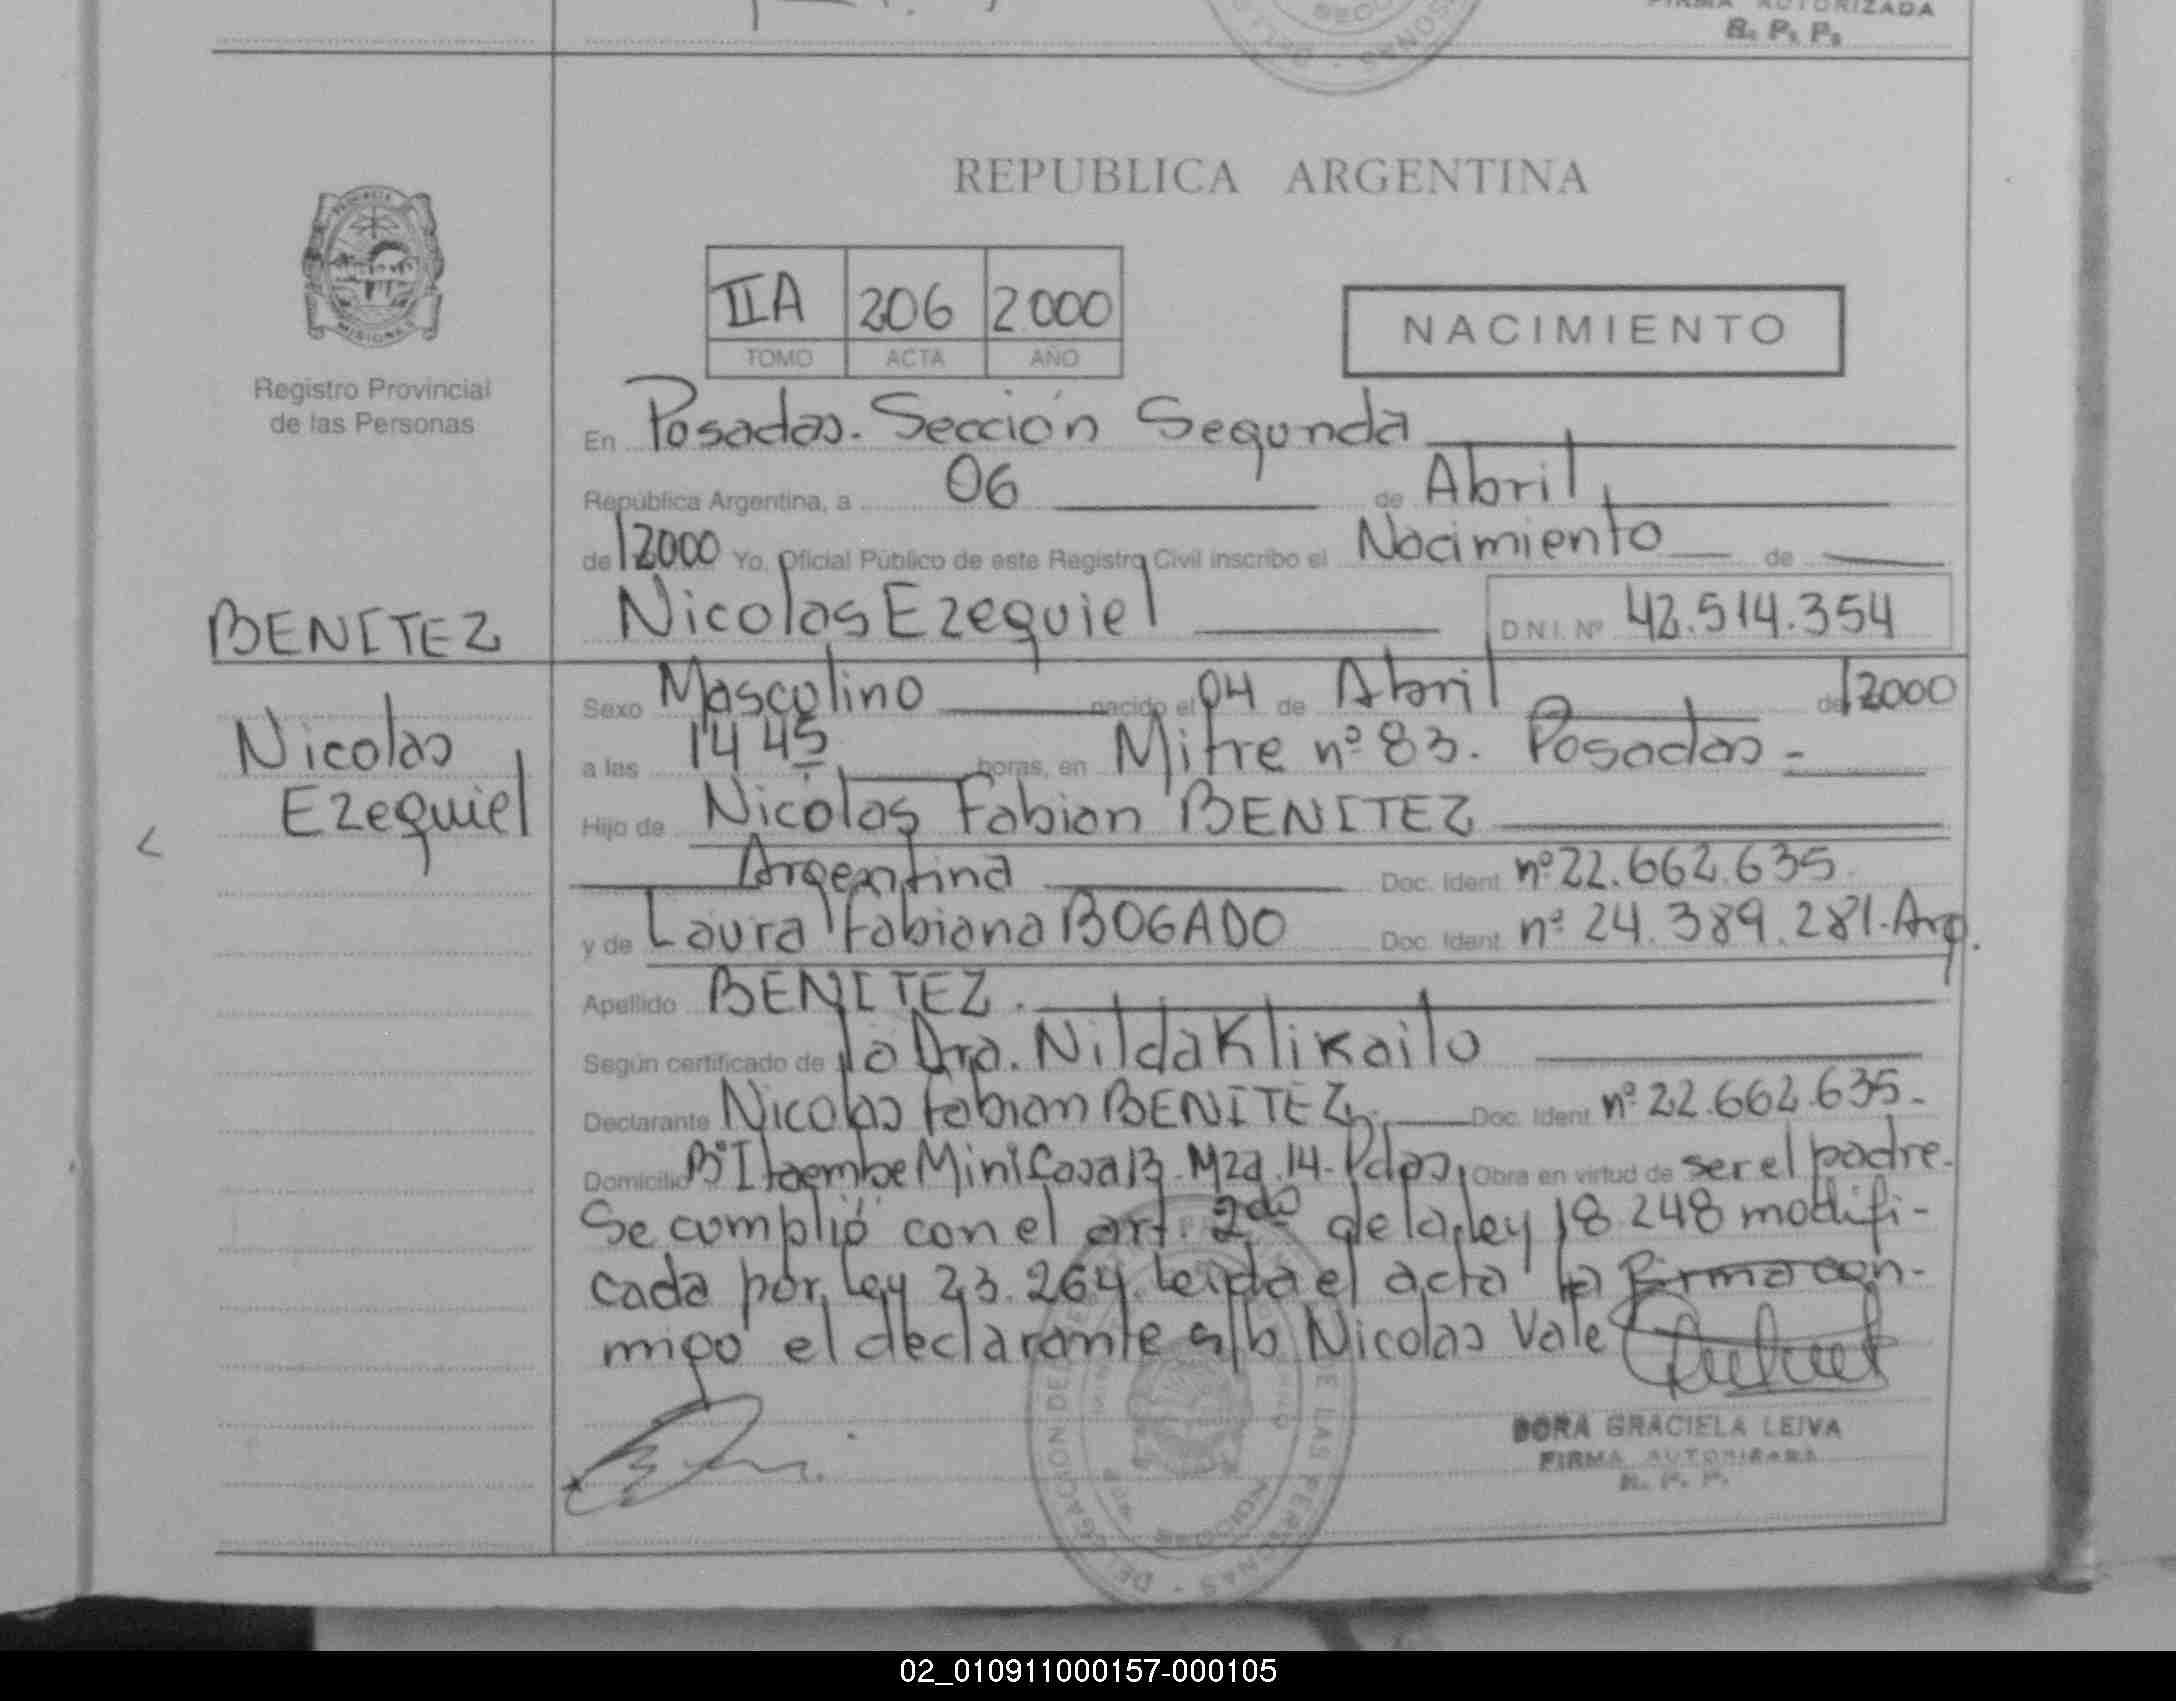 FIRMA AUTORIZADA
R. P. P.
REPUBLICA ARGENTINA
IIA 206 2000
TOMO ACTA AÑO
NACIMIENTO
Registro Provincial
de las Personas
En Posadas. Sección Segunda
República Argentina, a 06 de Abril
de 2000 Yo, Oficial Público de este Registro Civil inscribo el Nacimiento de
BENITEZ
Nicolas Ezequiel D.N.I. Nº 42.514.354
Nicolas
Ezequiel
Sexo Masculino nacido el 04 de Abril de 2000
a las 14 45 horas, en Mitre nº 83. Posadas-
Hijo de Nicolas Fabian BENITEZ
Argentina Doc. Ident. nº 22.662.635
y de Laura Fabiana BOGADO Doc. Ident. nº 24.389.281. Arg.
Apellido BENITEZ.
Según certificado de la Dra. Nilda Klikailo
Declarante Nicolas Fabian BENITEZ. Doc. Ident. nº 22.662.635.
Domicilio Bº Itaembe Mini Casa 13. Mza. 14. Pdas, Obra en virtud de ser el padre.
Se cumplió con el art. 2do de la ley 18.248 modifi-
cada por ley 23.264. Leida el acta la firma con-
migo el declarante s/b Nicolas Vale
DORA GRACIELA LEIVA
FIRMA AUTORIZADA
R. P. P.
02_010911000157-000105